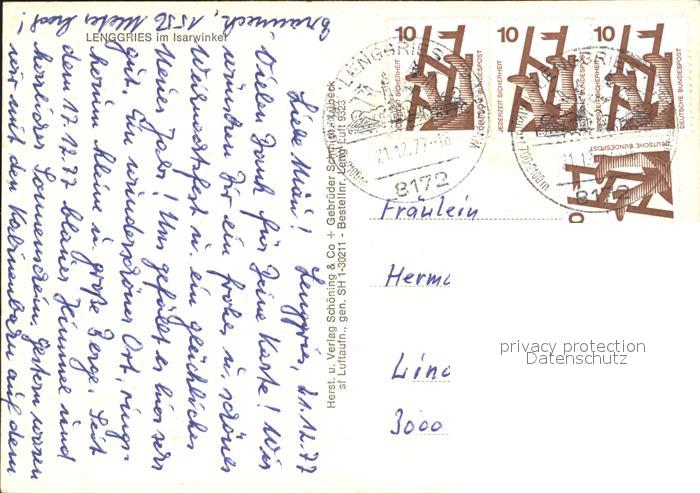 LENGGRIES im Isarwinkel
Lenggries, 21.12.77
Liebe Mimi!
Vielen Dank für Deine Karte! Wir
wünschen Dir ein frohes u. schönes
Weihnachtsfest u. ein glückliches
Neues Jahr! Uns gefällt es hier sehr
gut. Ein wunderschöner Ort, rings-
herum kleine u. große Berge. Seit
dem 17.12.77 blauer Himmel und
herrlicher Sonnenschein. Gestern waren
wir mit den Kabinenbahn auf dem
Brauneck, 1555 Meter hoch!
Herst. u. Verlag Schöning & Co + Gebrüder Schmidt, Lübeck
sf Luftaufn., gen. SH 1-30211 - Bestellnr. Leng Luft 9323
10 JEDERZEIT SICHERHEIT DEUTSCHE BUNDESPOST
10 JEDERZEIT SICHERHEIT DEUTSCHE BUNDESPOST
10 JEDERZEIT SICHERHEIT DEUTSCHE BUNDESPOST
DEUTSCHE BUNDESPOST
LENGGRIES
21.12.77-18
8172
LENGGRIES
8172
Fräulein
Herma
Lind
3000
privacy protection
Datenschutz